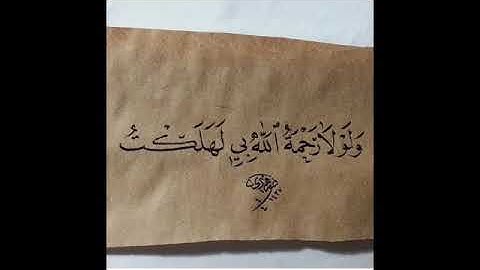 وَلَوْلَا رَحْمَةُ ٱللَّهِ بِي لَهَلَكْتُ